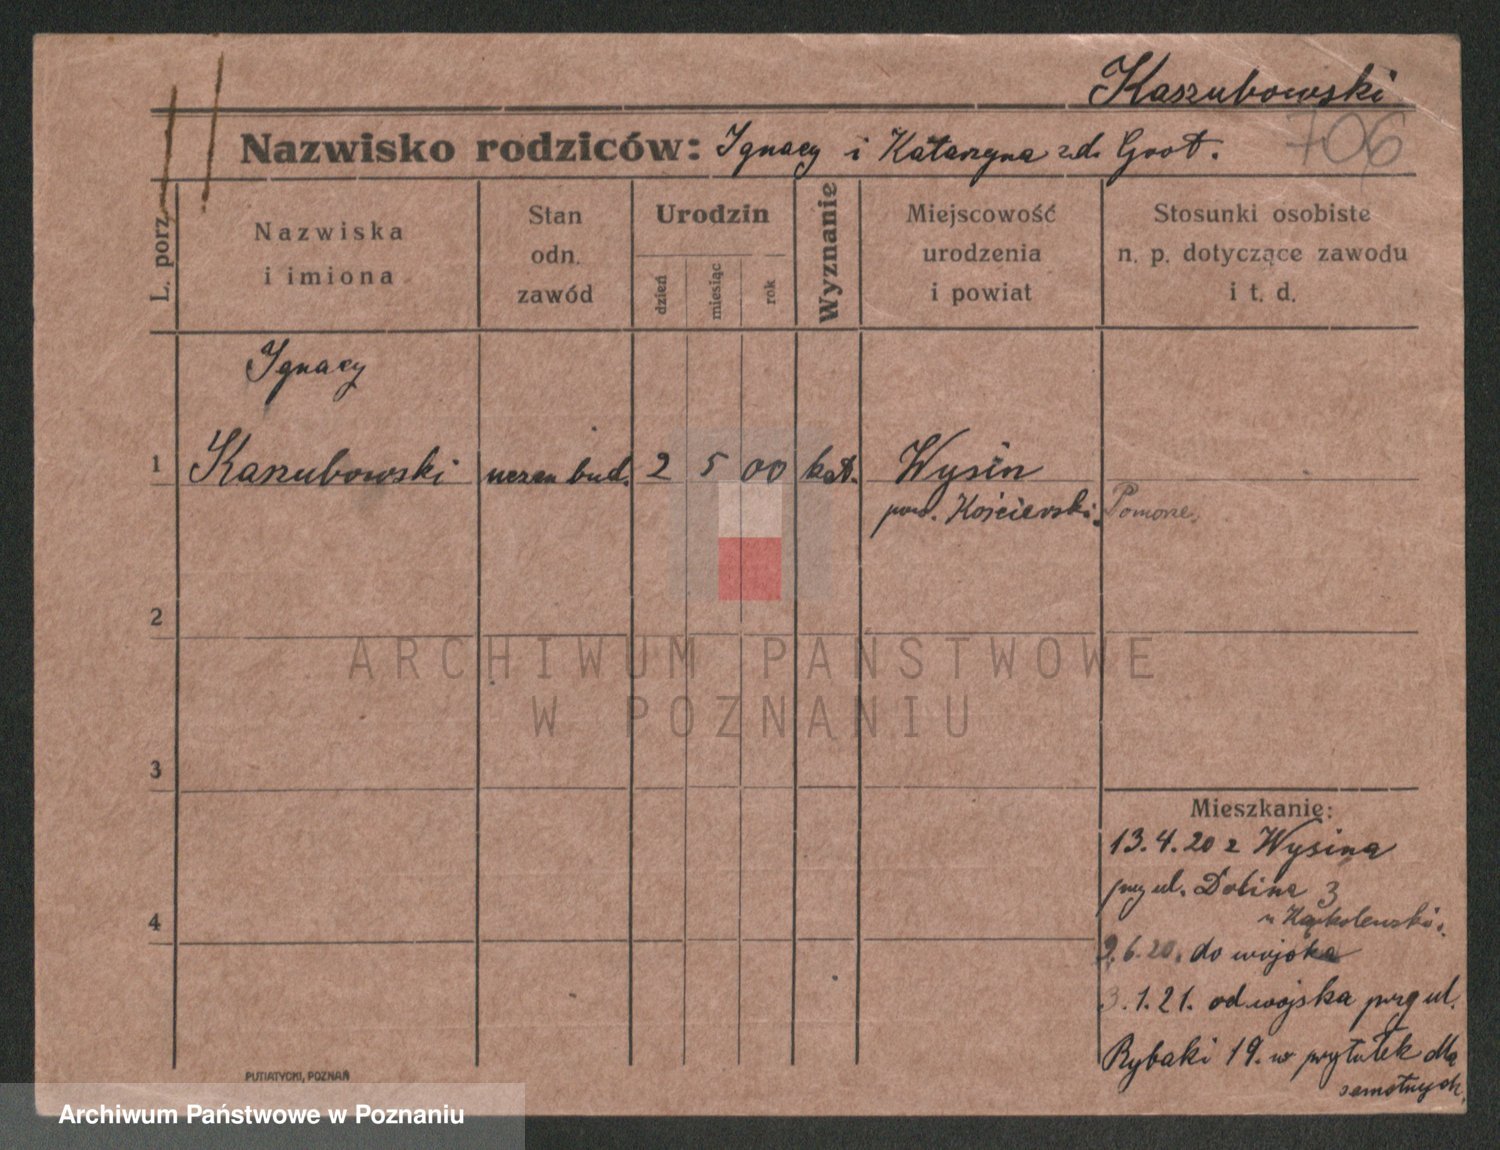 Kaszubowski
Nazwisko rodziców: Ignacy i Katarzyna z d. Grot.
706
L. porz.
Nazwiska
i imiona
Stan
odn.
zawód
Urodzin
dzień
miesiąc
rok
Wyznanie
Miejscowość
urodzenia
i powiat
Stosunki osobiste
n. p. dotyczące zawodu
i t. d.
Ignacy
1 Kaszubowski uczen bud. 2 5 00 kat. Wysin
pow. Kościerski. Pomorze.
2
ARCHIWUM PAŃSTWOWE
W POZNANIU
3
Mieszkanie:
13.4.20 z Wysina
przy ul. Dolina 3
u Kąkolewski.
4
9.6.20. do wojska
3.1.21. od wojska przy ul.
Rybaki 19. w przytułek dla
samotnych.
PUTIATYCKI, POZNAŃ
Archiwum Państwowe w Poznaniu